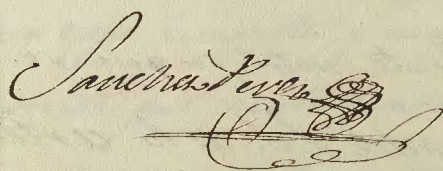 Sanchez Perez